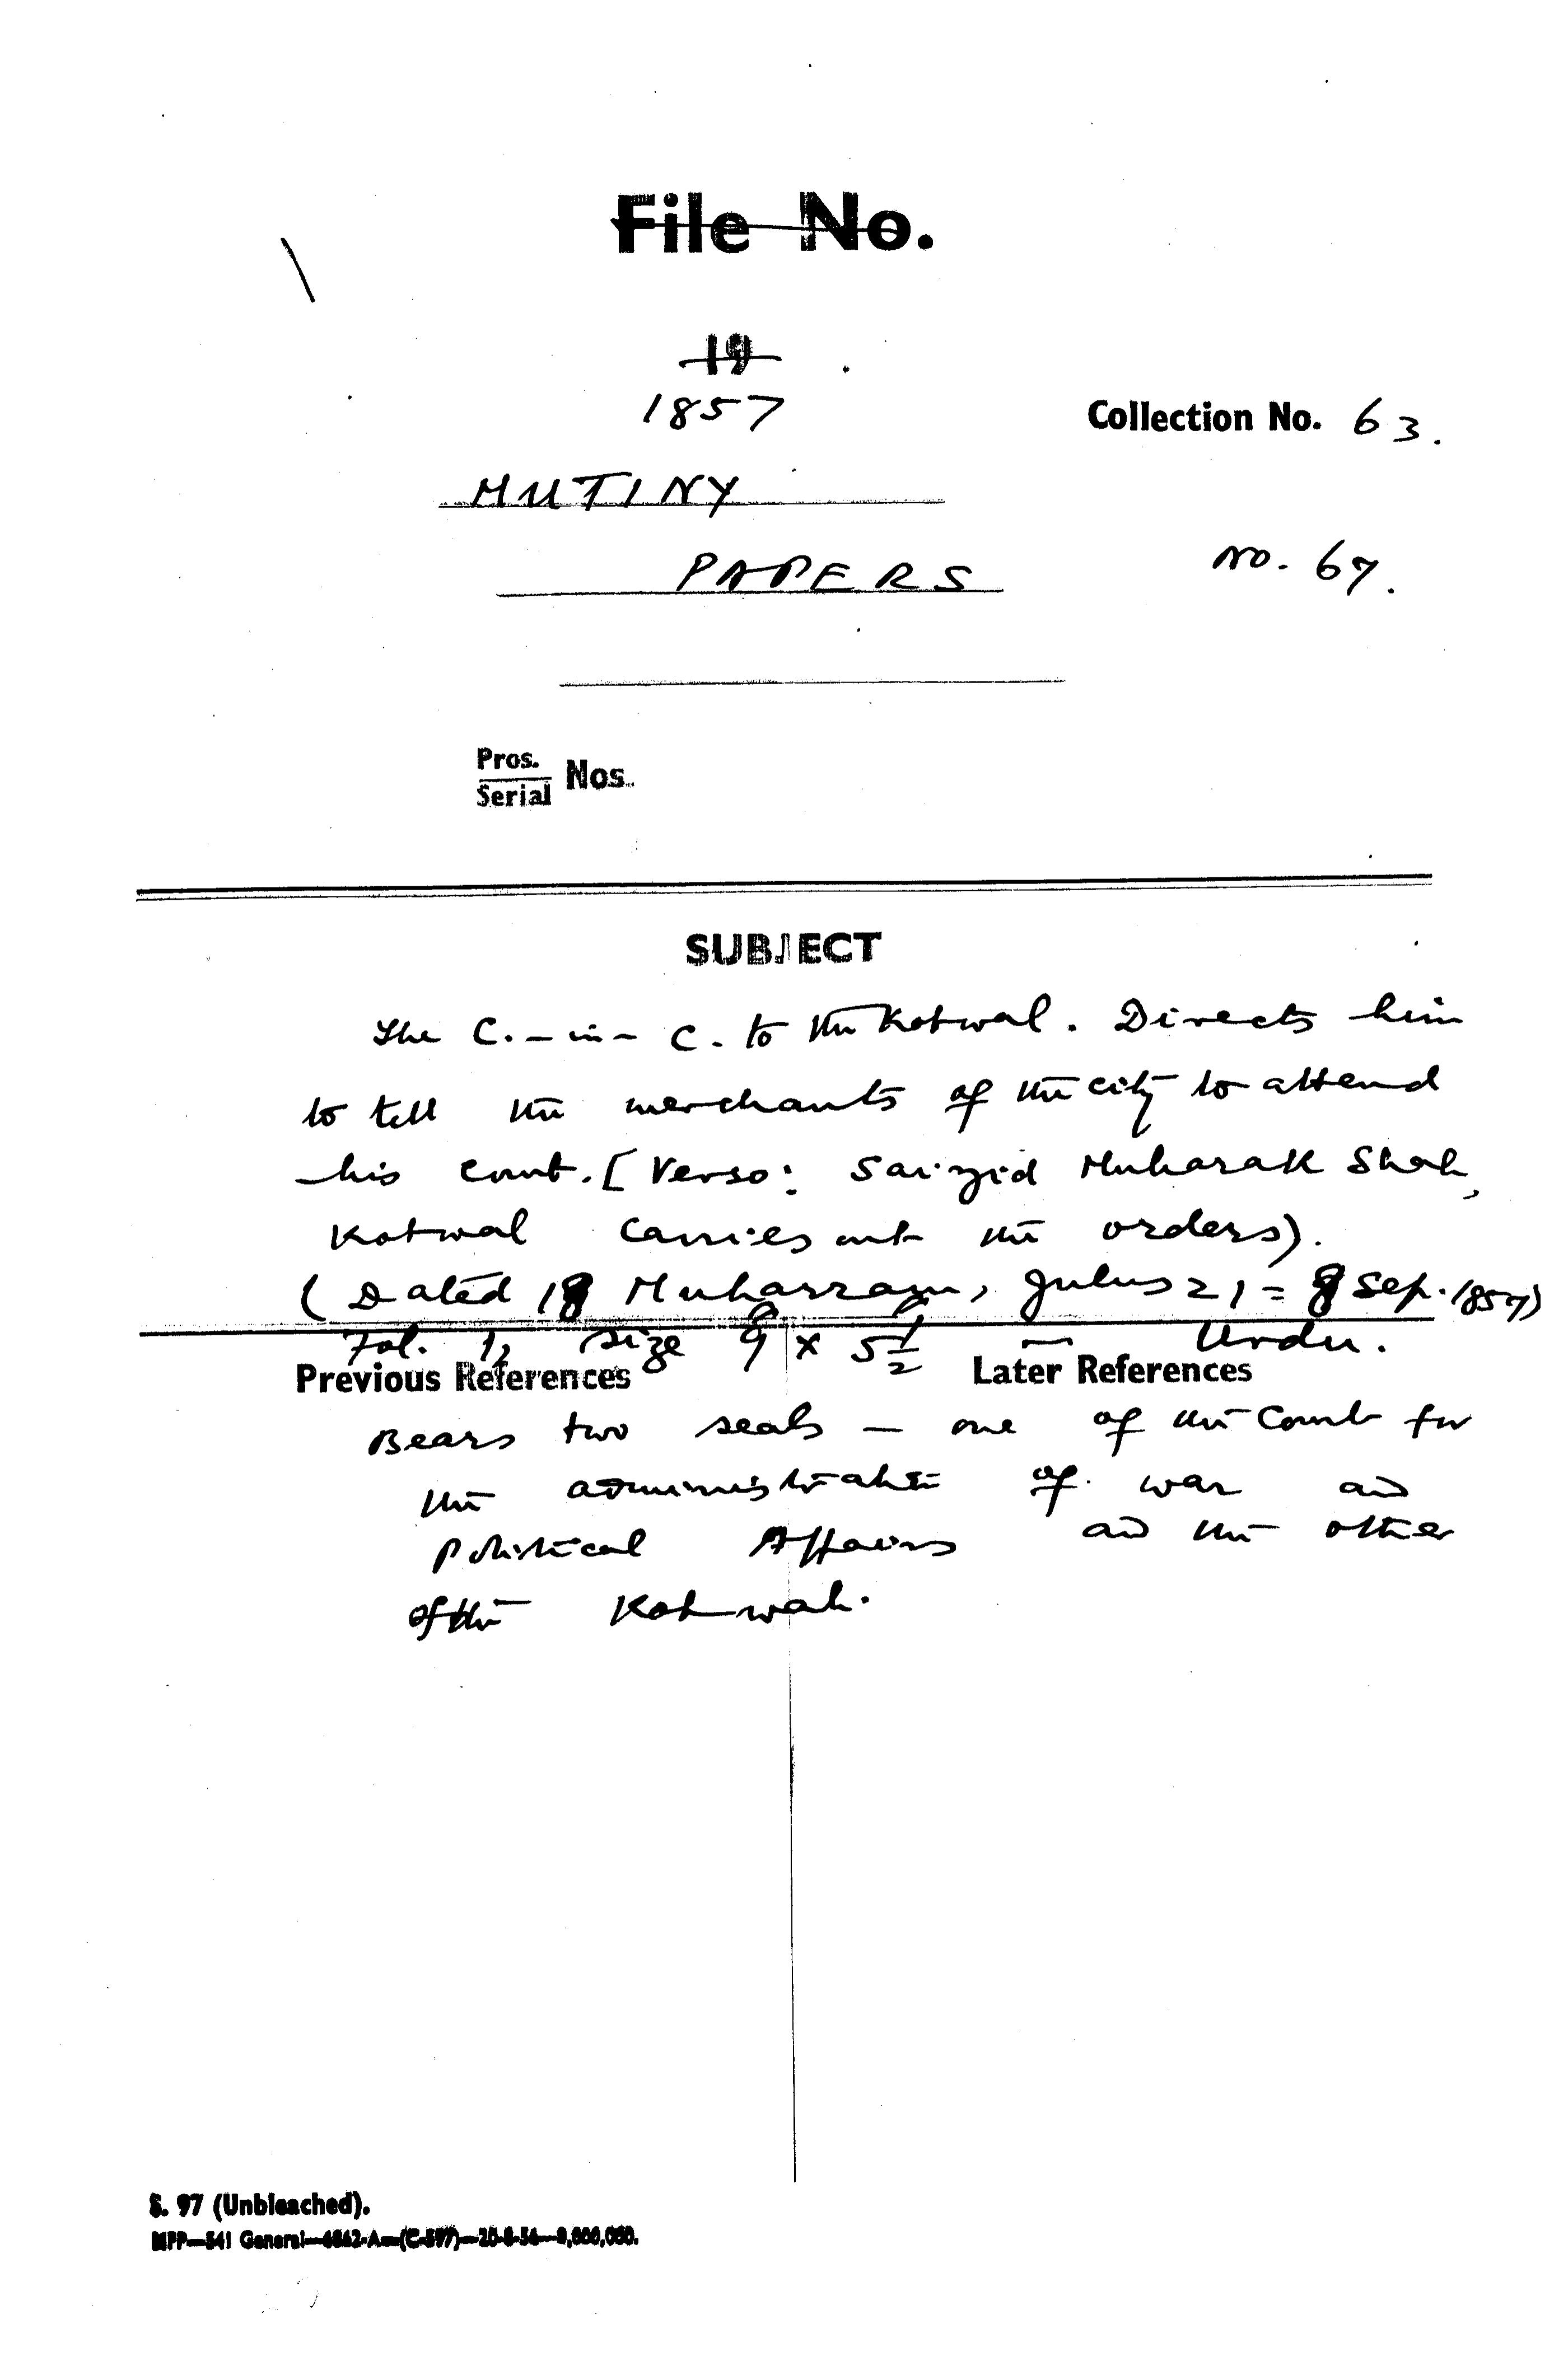 File No.
19
1857
Collection No. 63.
MUTINY
PAPERS
No. 67.
Pros.
Serial Nos.
SUBJECT
The C.-in-C. to the Kotwal. Directs him
to tell the merchants of the city to attend
his court. [Verso: Saiyid Mubarak Shah,
Kotwal carries out the orders).
(Dated 18 Muharram, Julus 21 = 8 Sep. 1857)
Fol. 1, size 9 x 5 1/2 — Urdu.
Previous References
Later References
Bears two seals — one of the Court for
the administration of war and
Political Affairs and the other
of the Kotwal.
S. 97 (Unbleached).
MFP—541 General—